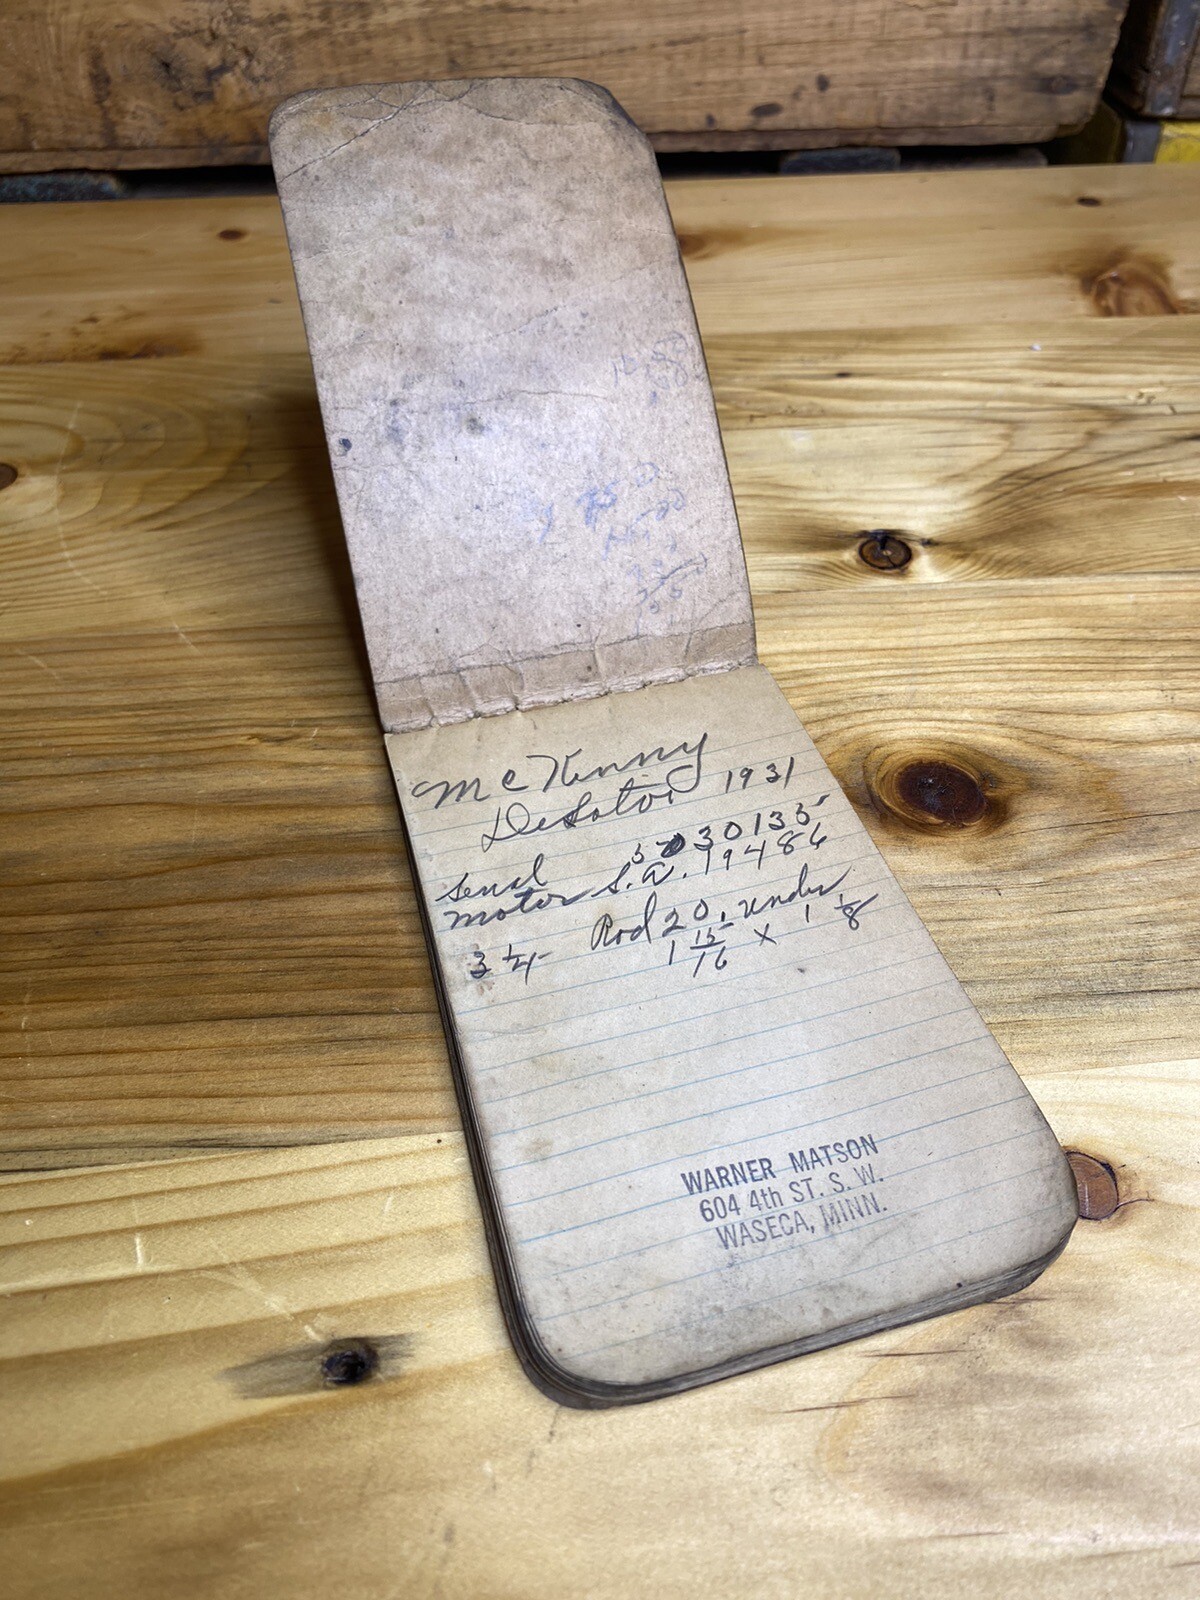 McKinny
DeSoto 1931
Serial 5030135
Motor S.A. 19486
Rod 20. under
3 1/4 1 15/16 x 1 1/8
WARNER MATSON
604 4th ST. S. W.
WASECA, MINN.